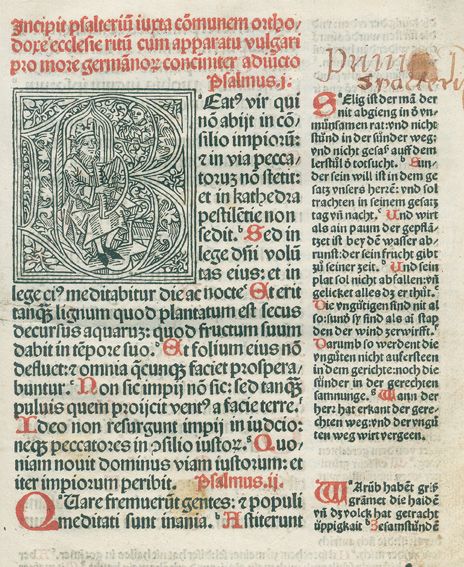 Incipit psalteriũ iuxta cõmunem ortho-
doxe ecclesie ritũ cum apparatu vulgari
pro more germanoꝝ concinniter adiũcto
Psalmus.j:
Eatꝰ vir qui
nõ abijt in cõ
silio impiorũ:
⁊ in via pecca-
toruꝫ nõ stetit:
et in kathedra
pestilẽtie non
sedit. Sed in
lege dñi volũ
tas eius: et in
lege eiꝰ meditabitur die ac nocte Et erit
tanqꝫ lignum quod plantatum est secus
decursus aquaruꝫ: quod fructum suum
dabit in tẽpore suo. Et folium eius nõ
defluet: ⁊ omnia q̃cunqꝫ faciet prospera-
buntur. Non sic impij nõ sic: sed tanqꝫ
puluis quem proijcit ventꝰ a facie terre.
Ideo non resurgunt impij in iudcio:
neqꝫ peccatores in ꝯsilio iustoꝝ. Quo-
niam nouit dominus viam iustorum: et
iter impiorum peribit. Psalmus.ij.
QUare fremuerũt gentes: ⁊ populi
meditati sunt inania. Astiterunt
SElig ist der mã der
nit abgieng in ð vn-
mũnsamen rat: vnd nicht
stũnd in der sũnder weg:
vnd nicht gesaß auff dem
lerstůl ð totsucht. Sun-
der sein will ist in dem ge
satz vnsers herrẽ: vnd sol
trachten in seinem gesatz
tag vñ nacht. Und wirt
als ain paum der gepflã-
tzet ist bey dẽ wasser ab-
runst: der sein frucht gibt
zů seiner zeit. Und sein
plat sol nicht abfallen: vñ
gelicket alles dz er thůt.
Die vngũtigen sind nit al
so: sunð sy sind als ai stap
den der wind zerwirfft.
Darumb so werdent die
vngũten nicht aufersteen
in dem gerichte: noch die
sũnder in der gerechten
samnunge. Wann der
herꝛ hat erkant der gere-
chten weg: vnd der vngũ
ten weg wirt vergeen.
WArũb habẽt griß
gramet die haidẽ
vñ dz volck hat getracht
ũppigkait Zesamstũndẽ